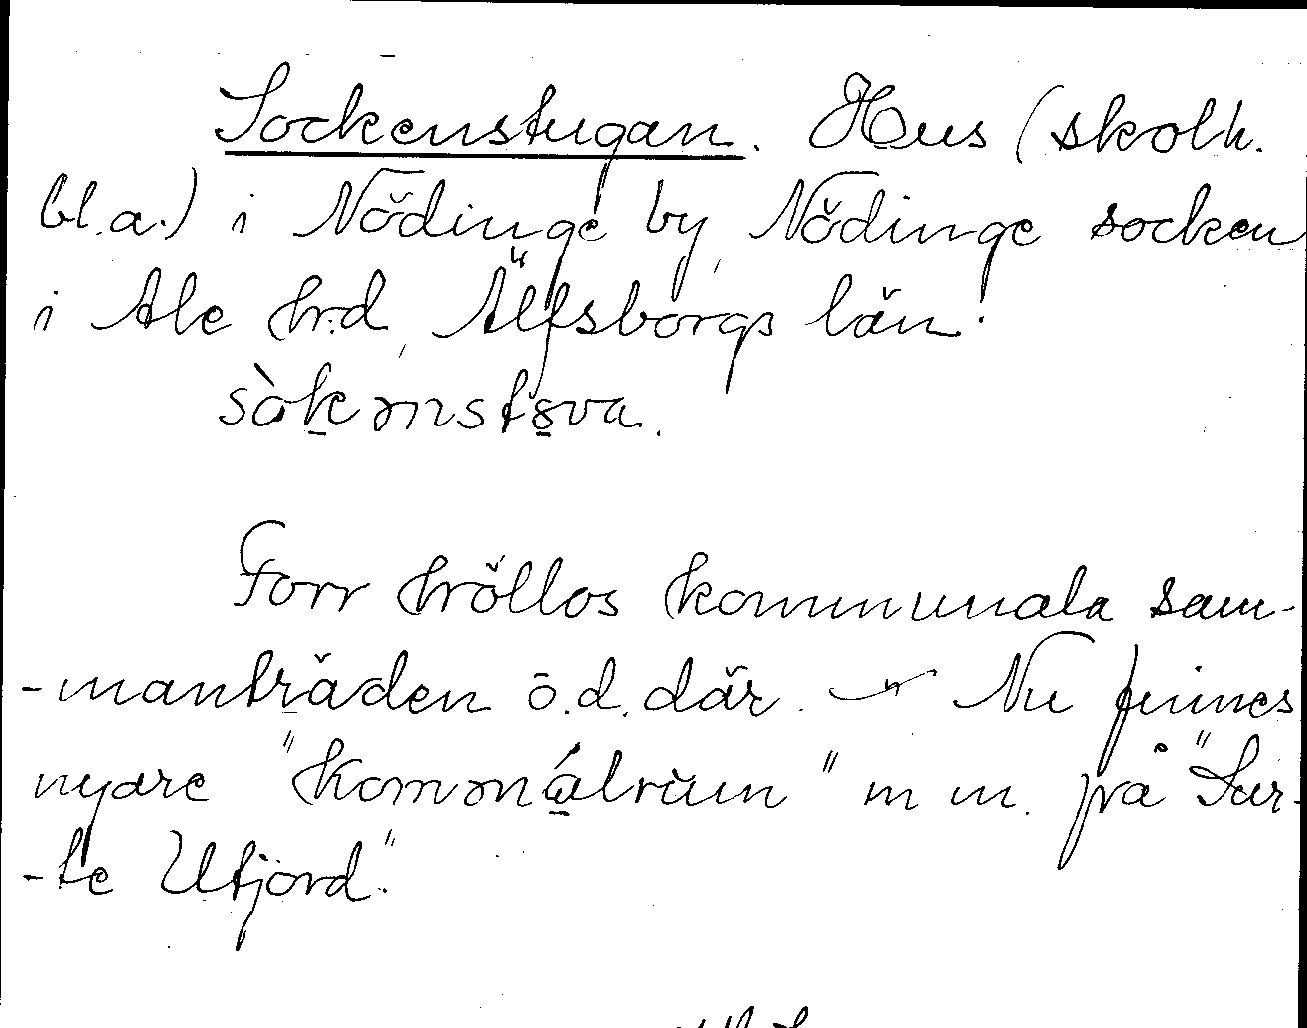 Sockenstugan. Hus (skolh.
bl.a.) i Nödinge by, Nödinge socken
i Ale hrd, Älfsborgs län.
sòkenstova.
Förr höllos kommunala sam-
-manträden o.d. där. — Nu finnes
nyare "kommnálrùm" m m. på "Sur-
-te Utjord".